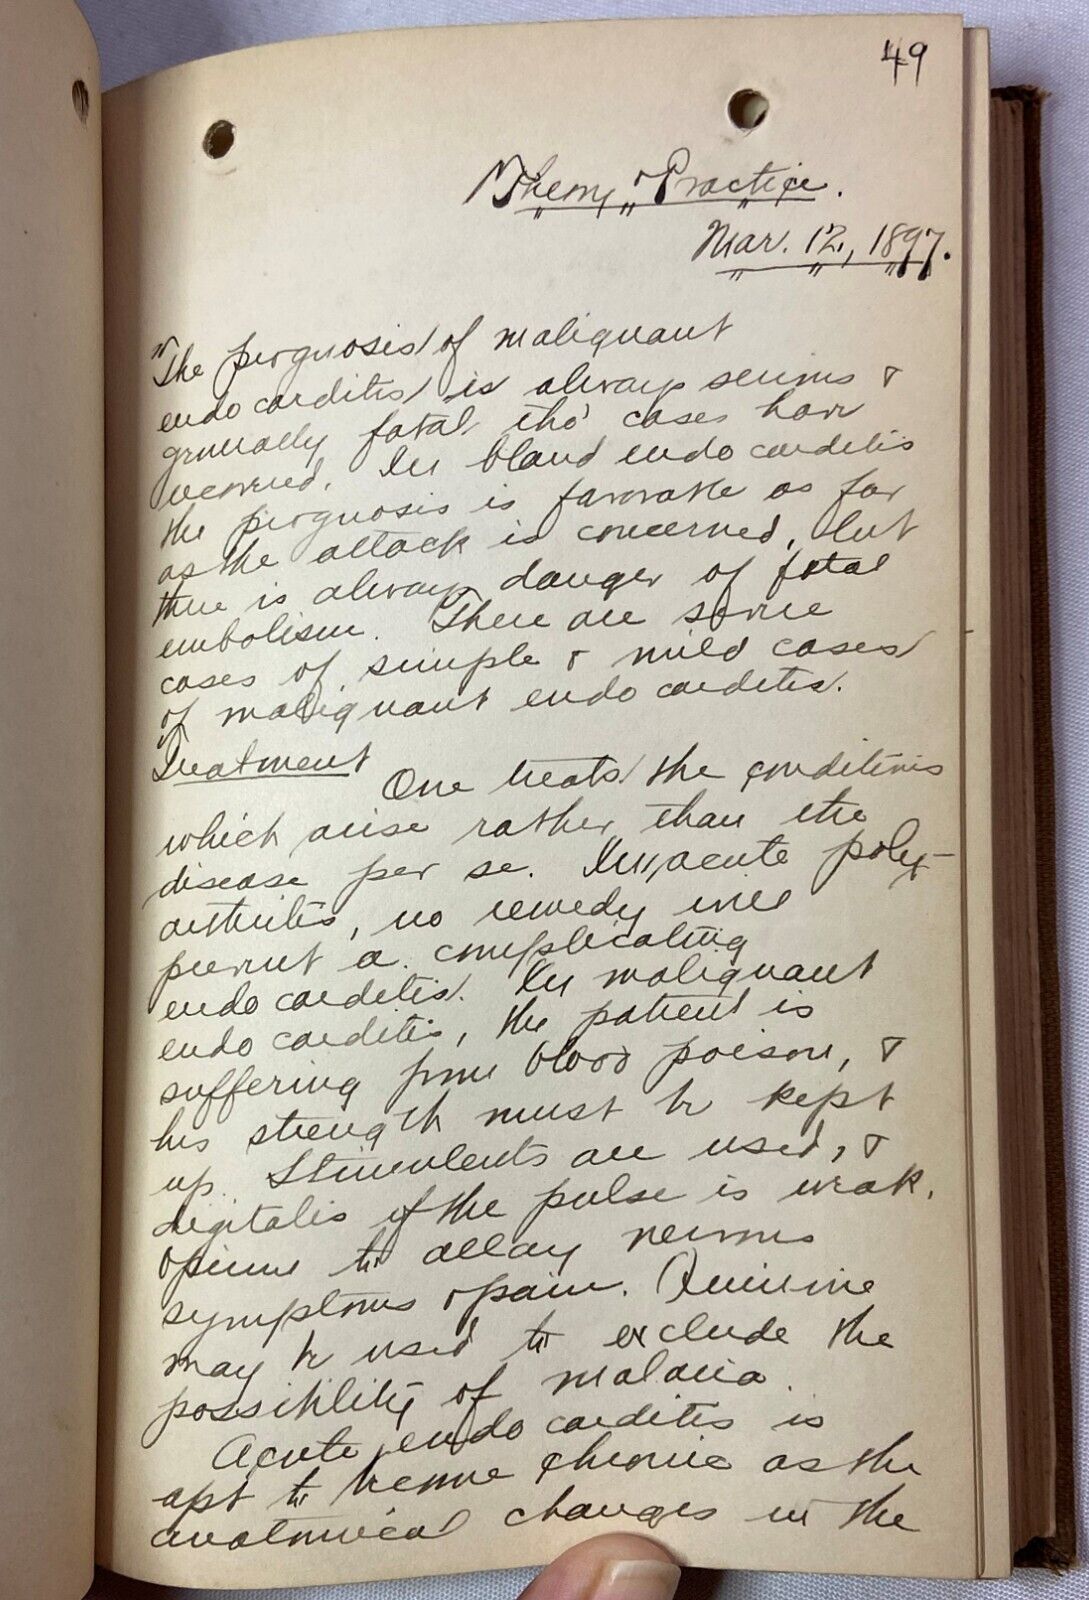 49
Theory & Practice.
Mar. 12, 1897.
The prognosis of malignant
endocarditis is always serious &
generally fatal tho' cases have
recovered. In bland endocarditis
the prognosis is favorable as far
as the attack is concerned, but
there is always danger of fatal
embolism. There are some
cases of simple & mild cases
of malignant endocarditis.
Treatment
One treats the conditions
which arise rather than the
disease per se. In acute poly-
arthritis, no remedy will
prevent a complicating
endocarditis. In malignant
endocarditis, the patient is
suffering from blood poison, &
his strength must be kept
up. Stimulents are used, &
digitalis if the pulse is weak,
opium to allay nervous
symptoms & pain. Quinine
may be used to exclude the
possibility of malaria.
Acute endocarditis is
apt to become chronic as the
anatomical changes in the